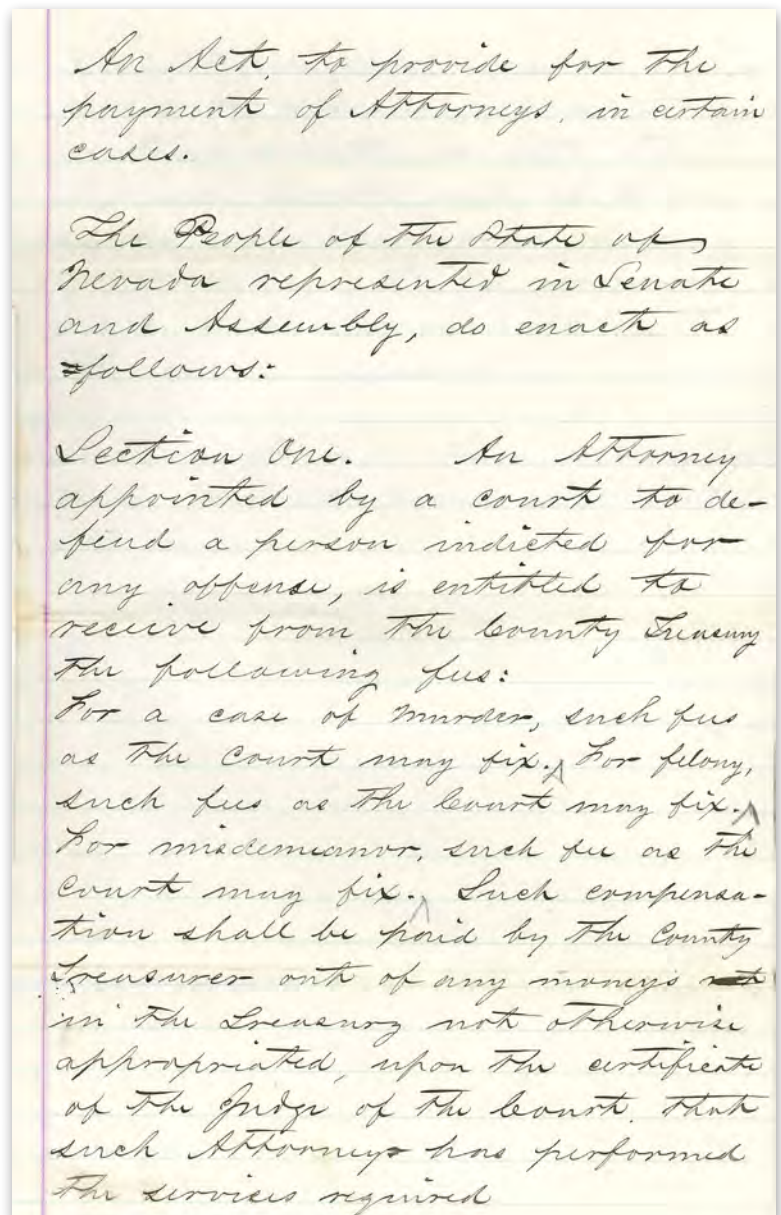 An Act, to provide for the
payment of Attorneys, in certain
cases.
The People of the State of
Nevada represented in Senate
and Assembly, do enact as
follows:
Section One. An Attorney
appointed by a court to de-
fend a person indicted for
any offense, is entitled to
receive from the County Treasury
the following fees:
For a case of murder, such fees
as the Court may fix. For felony,
such fees as the Court may fix.
For misdemeanor, such fee as the
Court may fix. Such compensa-
tion shall be paid by the County
Treasurer out of any moneys
in the Treasury not otherwise
appropriated, upon the certificate
of the Judge of the Court, that
such Attorney has performed
the services required